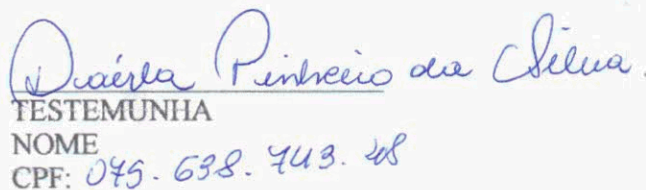 Pinheiro da Silva.
TESTEMUNHA
NOME
CPF: 075.638.743.48